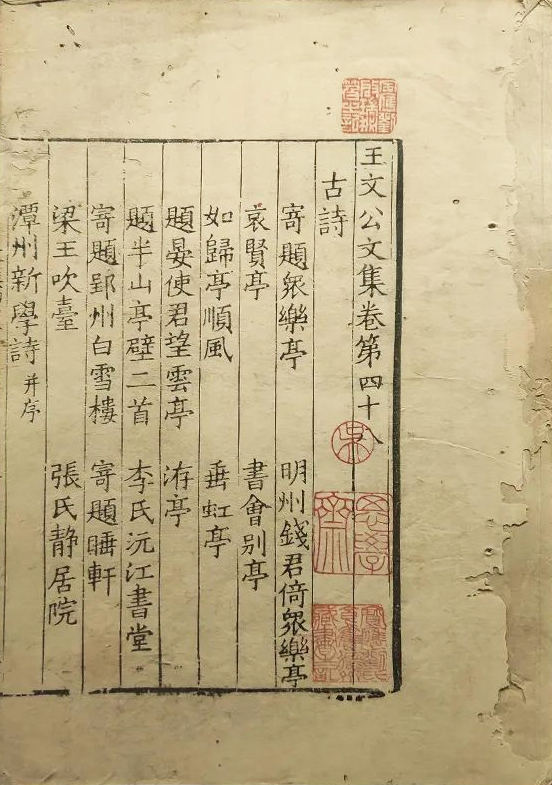 王文公文集卷第四十八
古詩
寄題衆樂亭 明州錢君倚衆樂亭
哀賢亭 書會别亭
如歸亭順風 垂虹亭
題晏使君望雲亭 洊亭
題半山亭壁二首 李氏沅江書堂
寄題郢州白雪樓 寄題睡軒
梁王吹臺 張氏静居院
潭州新學詩并序